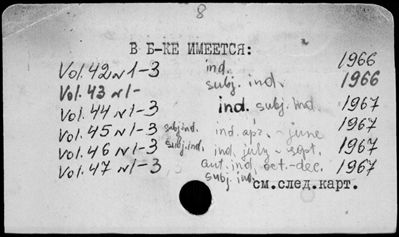 8
В Б-КЕ ИМЕЕТСЯ:
Vol. 42 N 1-3 ind. 1966
Vol. 43 N 1- subj. ind. 1966
Vol. 44 N 1-3 ind. subj. ind. 1967
Vol. 45 N 1-3 subj. ind. ind. apr. - june 1967
Vol. 46 N 1-3 subj. ind. ind. july - sept. 1967
Vol. 47 N 1-3 aut. ind. oct.-dec. 1967
subj. ind.
см.след.карт.